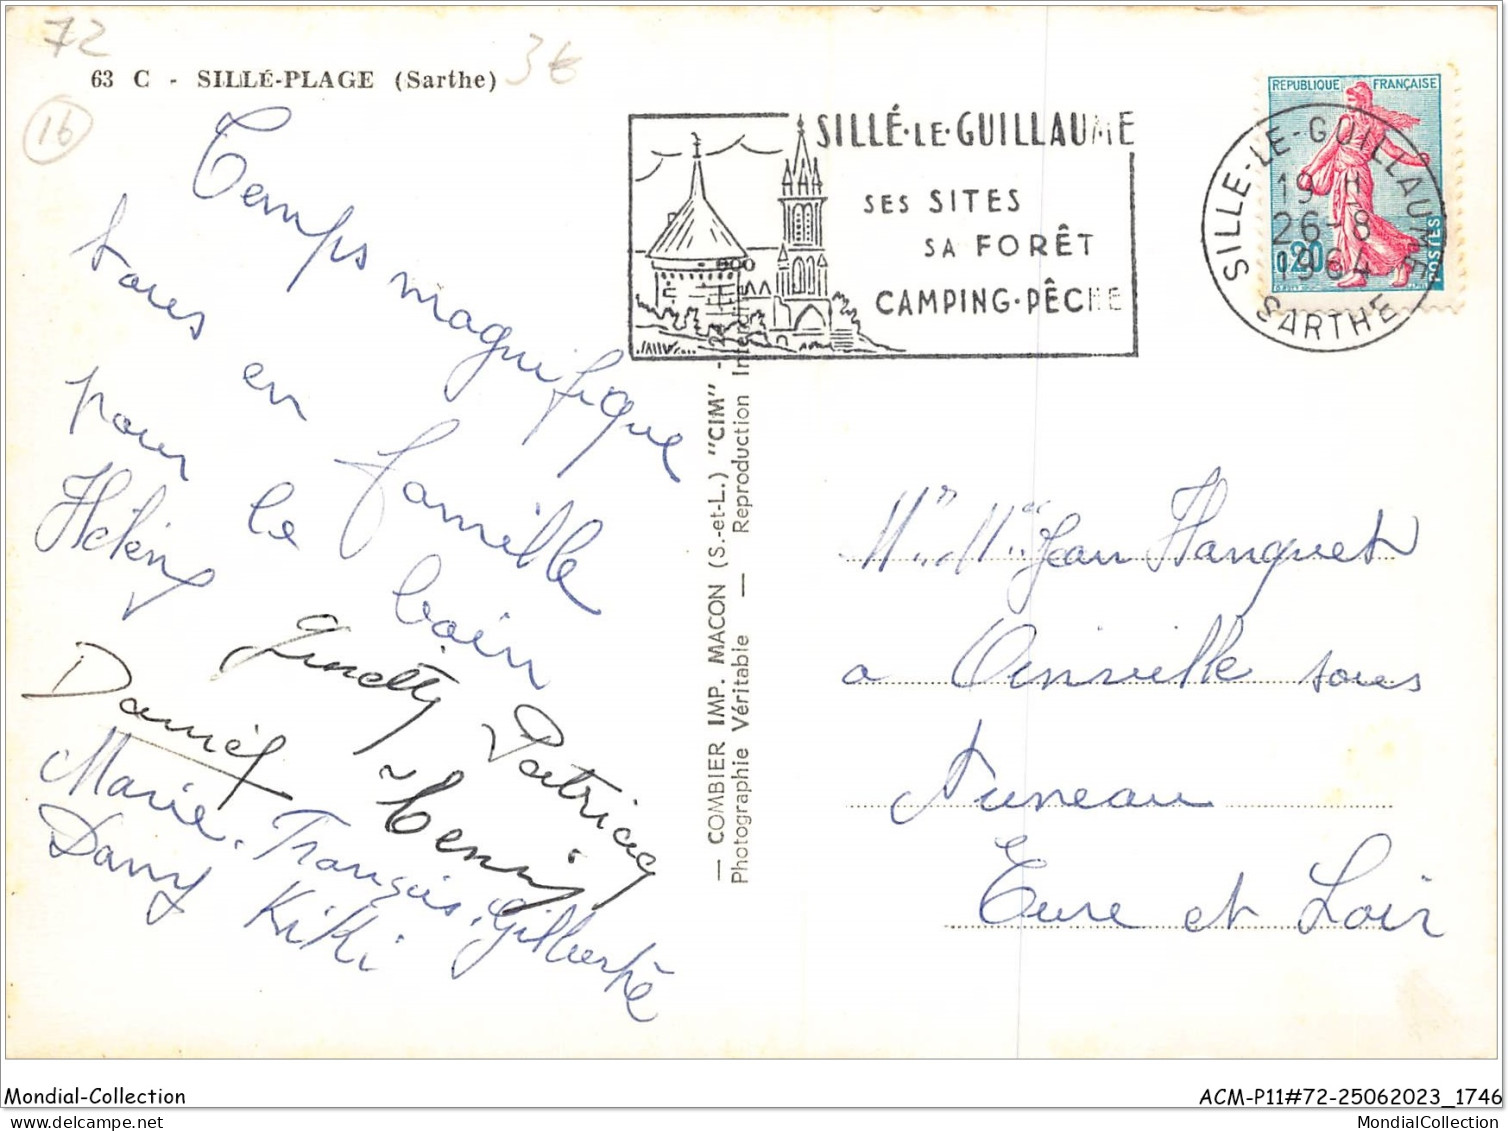 72
63 C - SILLÉ-PLAGE (Sarthe)
3€
16
Temps magnifique
tous en famille
pour le bain
Hélèn
Ginette Patrick
Daniel Henri
Marie-François, Gilberte
Dany Kiki
— COMBIER IMP. MACON (S.-et-L.) "CIM" —
Photographie Véritable — Reproduction Interdite
SILLÉ-LE-GUILLAUME
SES SITES
SA FORÊT
CAMPING-PÊCHE
REPUBLIQUE FRANÇAISE
0,20
POSTES
SILLE-LE-GUILLAUME
19 H
26-8
1964
SARTHE
Mr Me Jean Hanquet
a Oinville sous
Auneau
Eure et Loir
Mondial-Collection
ACM-P11#72-25062023_1746
MondialCollection.com